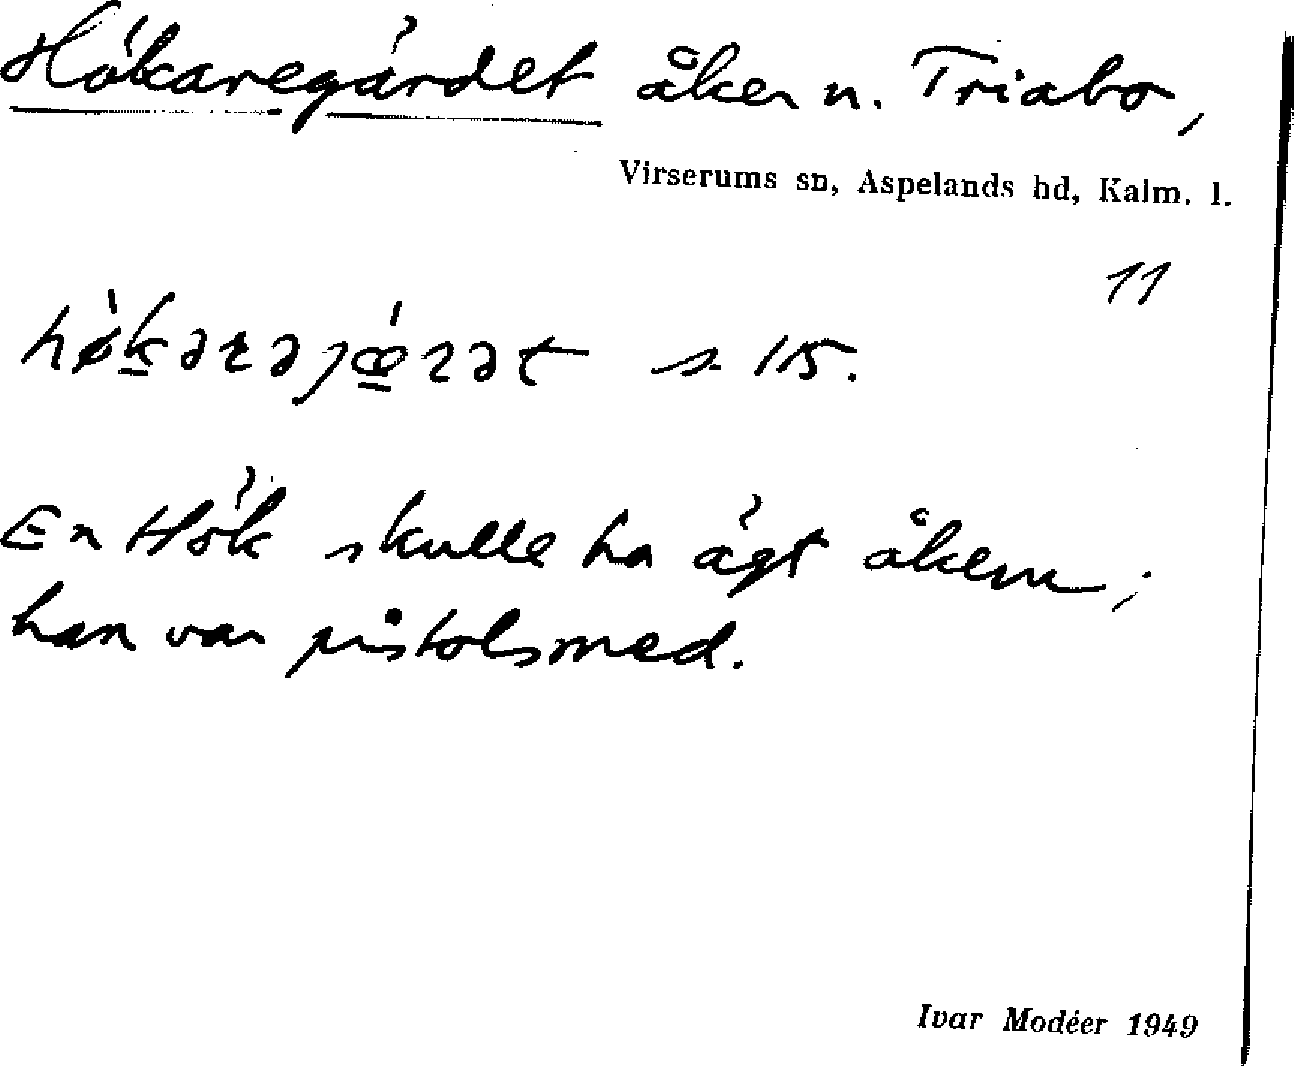 Hökaregärdet åker n. Triabo,
Virserums sn, Aspelands hd, Kalm. l.
11
s. 115.
En Hök skulle ha ägt åkern;
han var pistolsmed.
Ivar Modéer 1949